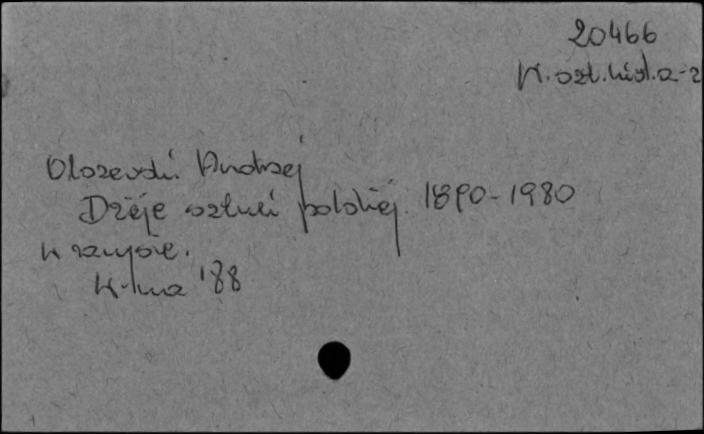 20466
K. szt. hist. a-z
Olszewski. Andrzej
Dzieje sztuki polskiej. 1890-1980
w zarysie.
W-wa '88